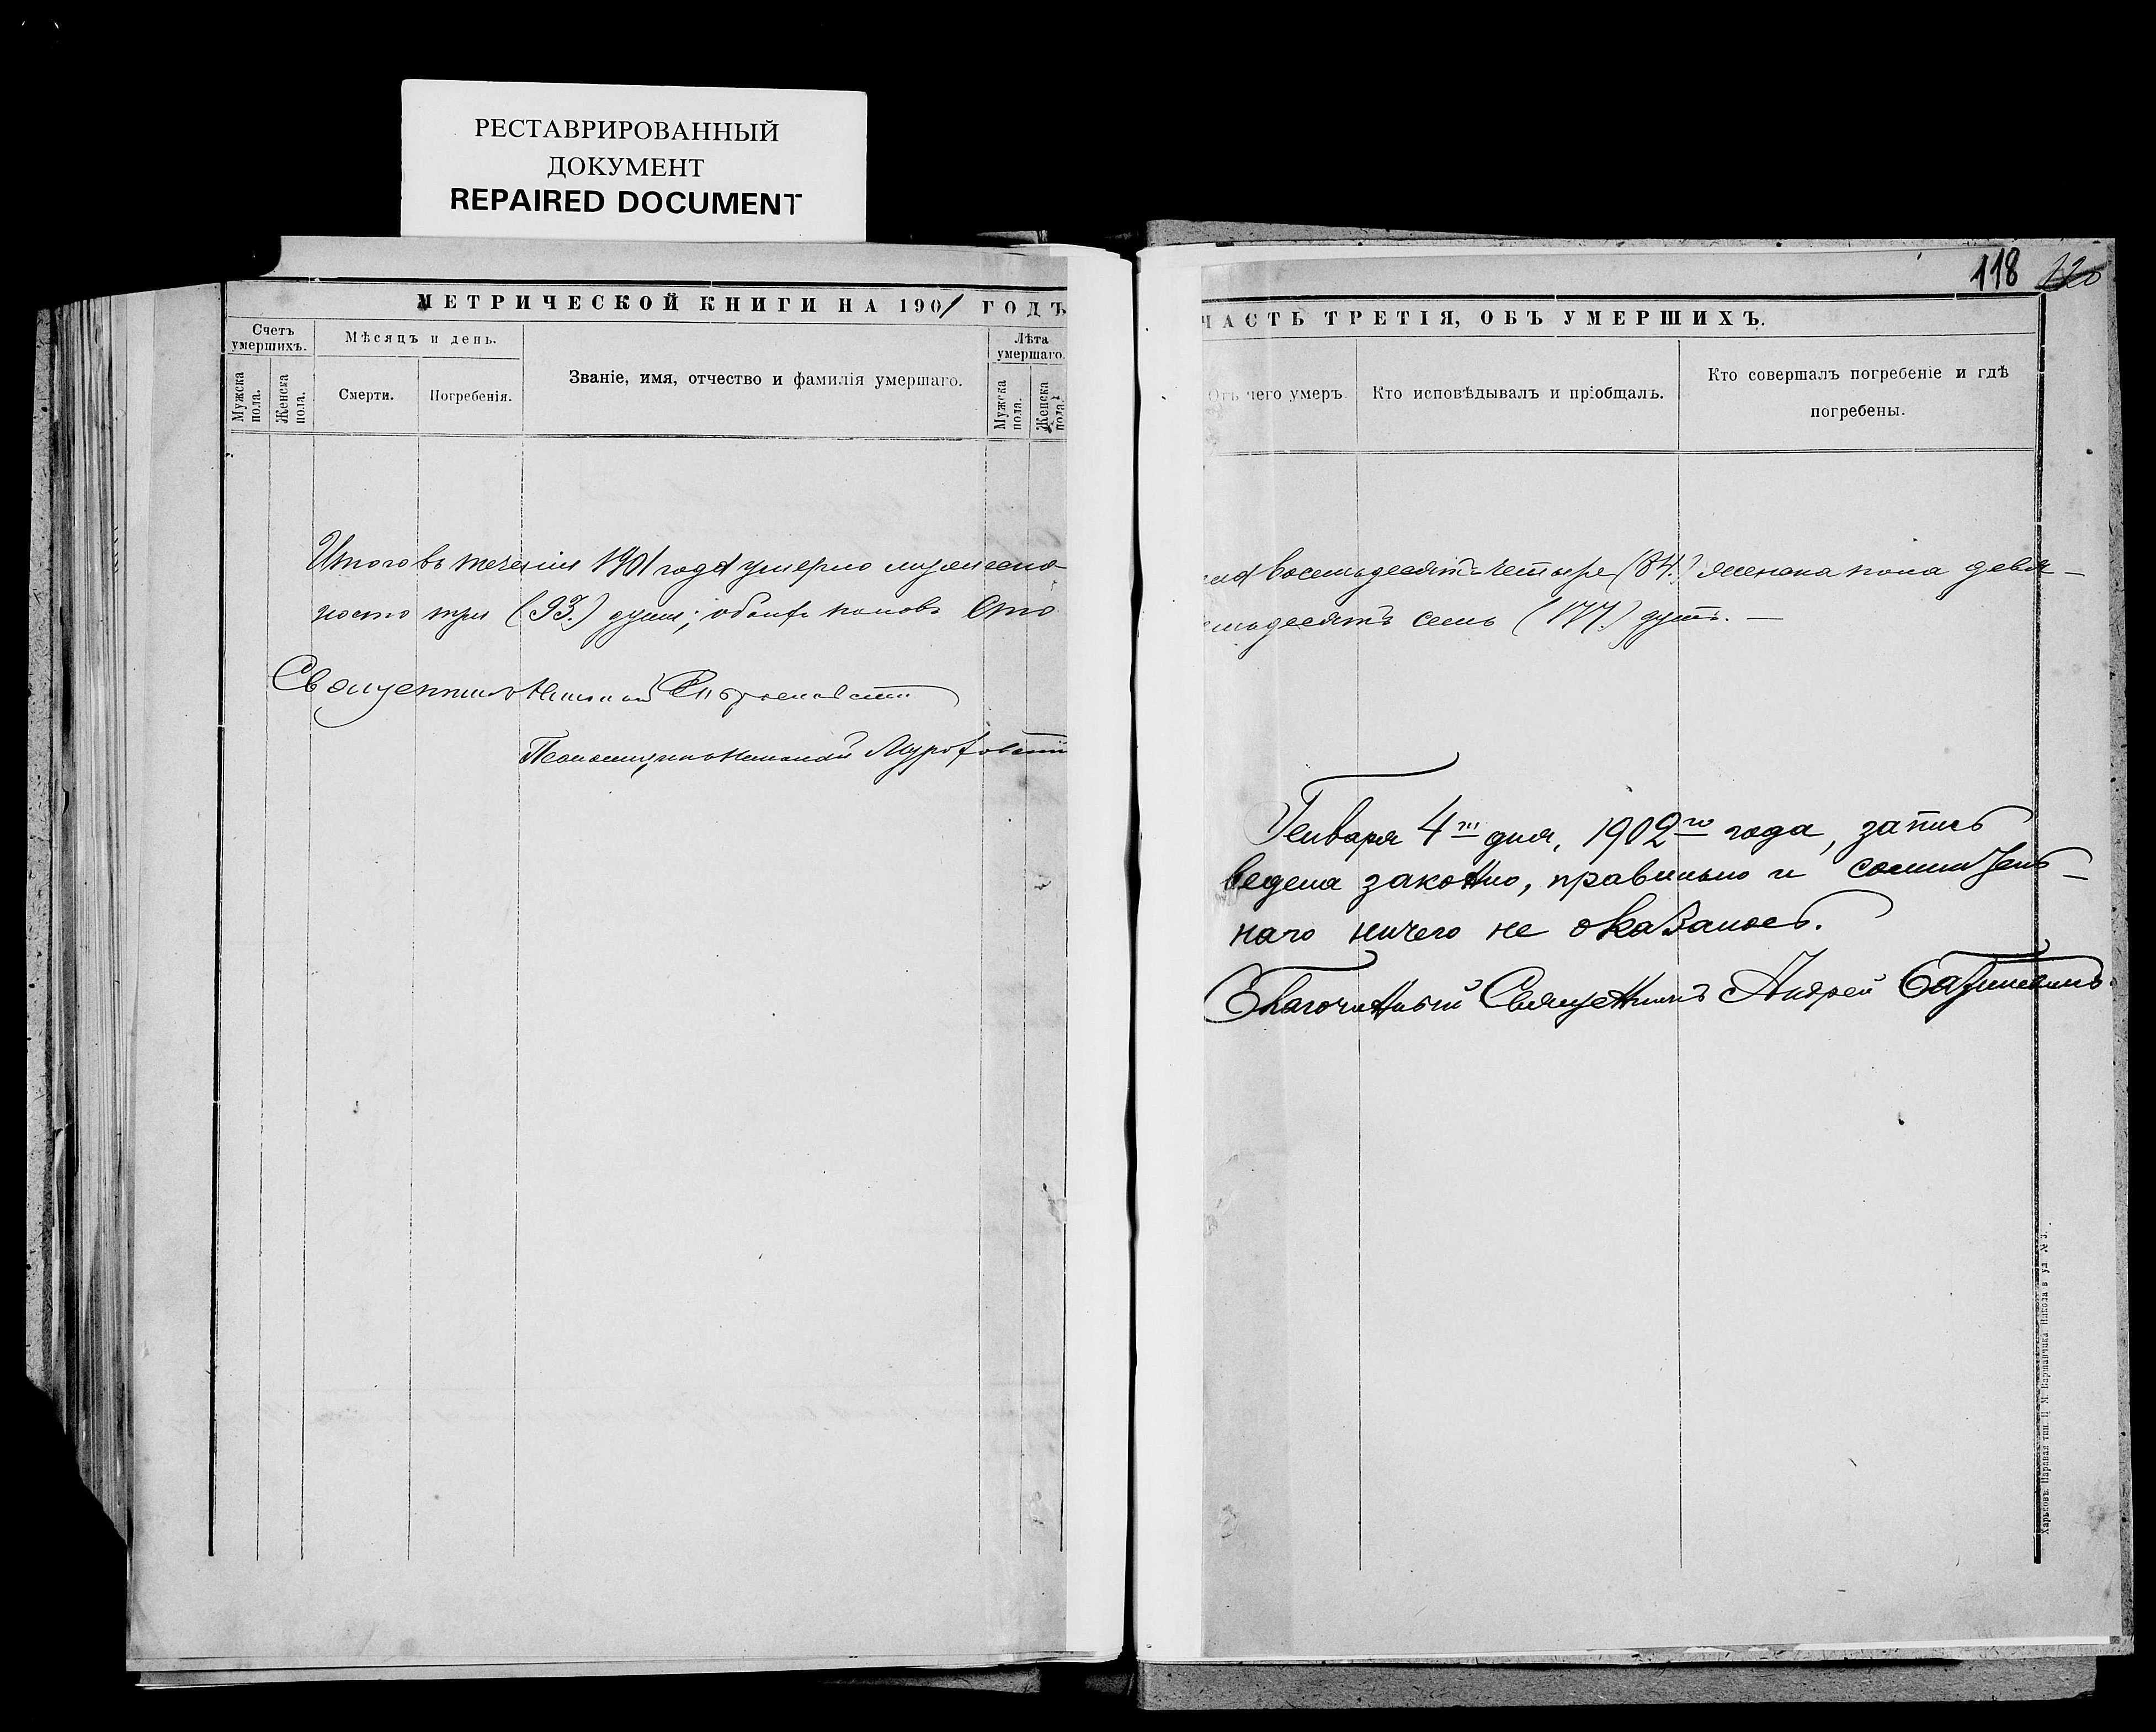 РЕСТАВРИРОВАННЫЙ
ДОКУМЕНТ
REPAIRED DOCUMENT
МЕТРИЧЕСКОЙ КНИГИ НА 1901 ГОДЪ
Счетъ умершихъ.
Мужска пола.
Женска пола.
Мѣсяцъ и день.
Смерти.
Погребенія.
Званіе, имя, отчество и фамилія умершаго.
Лѣта умершаго.
Мужска пола.
Женска пола.
Итого въ теченіи 1901 года умерло мужеска
носто три (93.) души; обоихъ половъ Сто
Священникъ Николай
Псаломщикъ Николай
118 120
ЧАСТЬ ТРЕТІЯ, ОБЪ УМЕРШИХЪ.
Отъ чего умеръ.
Кто исповѣдывалъ и пріобщалъ.
Кто совершалъ погребеніе и гдѣ
погребены.
ла восемьдесятъ четыре (84.) женска пола девя-
емьдесятъ семь (177.) душъ. —
Генваря 4го дня, 1902го года, запись
ведена законно, правильно и сомнитель-
наго ничего не оказалось.
Благочинный Священникъ Андрей
Харьковъ. Паровая тип. Ц. М. Варшавчика